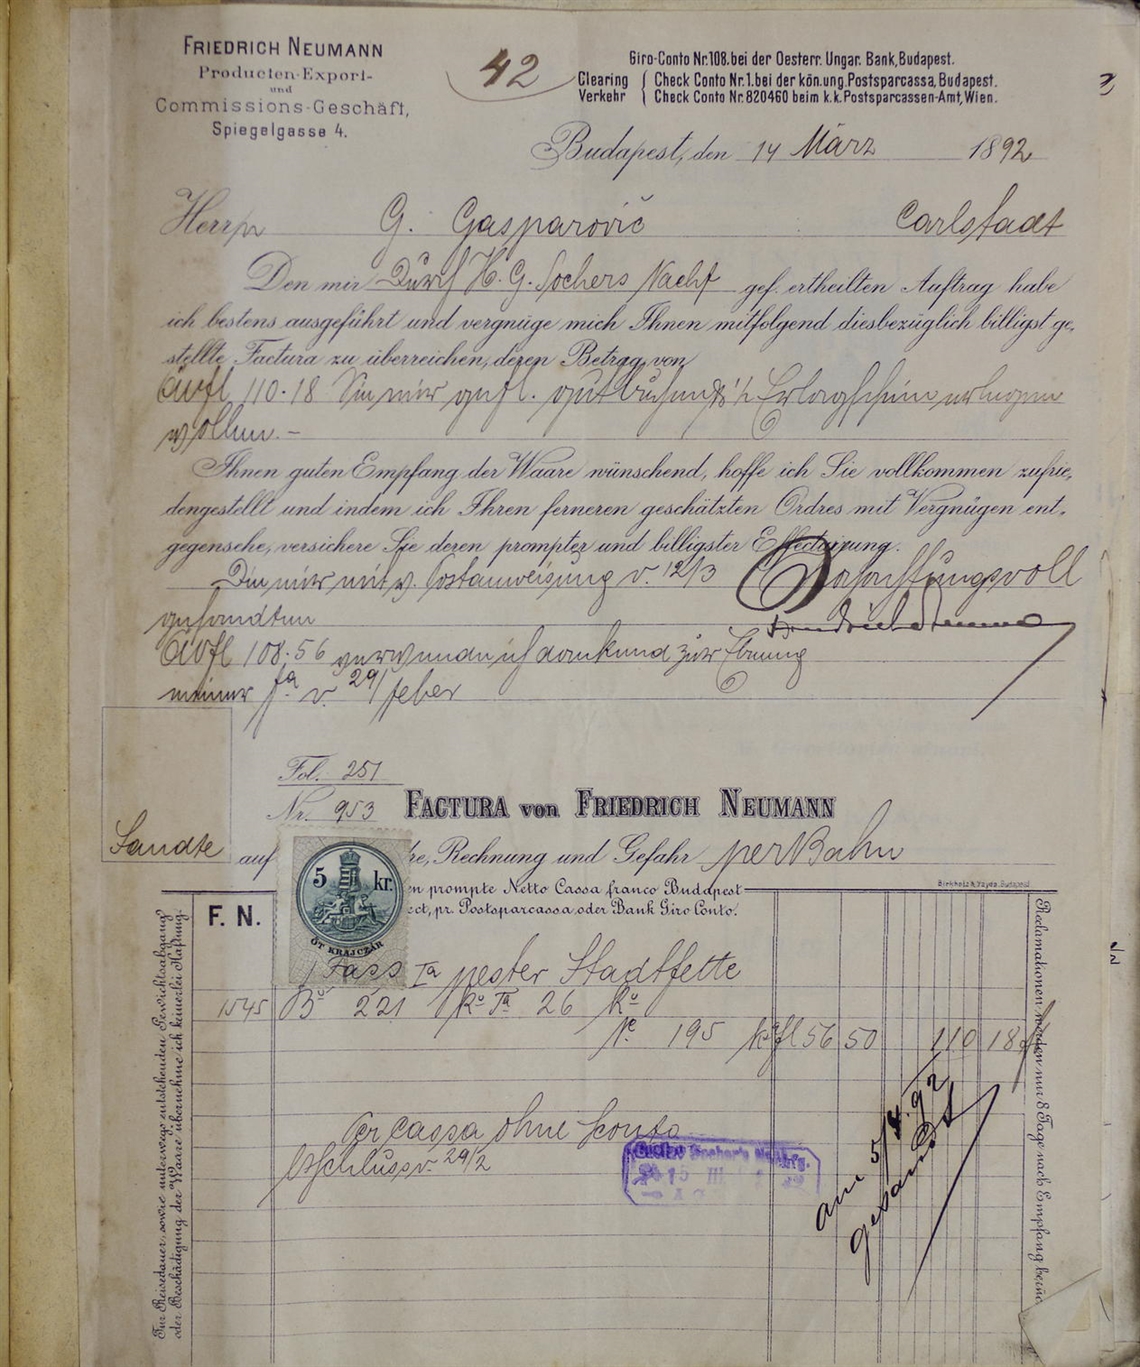 FRIEDRICH NEUMANN
Producten-Export-
und
Commissions-Geschäft,
Spiegelgasse 4.
42
Giro-Conto Nr. 108. bei der Oesterr. Ungar. Bank, Budapest.
Clearing Verkehr { Check Conto Nr. 1. bei der kön. ung. Postsparcassa, Budapest.
Check Conto Nr. 820460 beim k. k. Postsparcassen-Amt, Wien.
Budapest, den 14 März 1892
Herrn G. Gasparovič Carlstadt
Den mir Durch H. G. Sochers Nachf gef. ertheilten Auftrag habe
ich bestens ausgeführt und vergnüge mich Ihnen mitfolgend diesbezüglich billigst ge-
stellte Factura zu überreichen, deren Betrag von
öwfl 110.18 Sie mir gefl. gutbuchend Erlagschein erlegen
wollen. –
Ihnen guten Empfang der Waare wünschend, hoffe ich Sie vollkommen zufrie-
dengestellt und indem ich Ihren ferneren geschätzten Ordres mit Vergnügen ent-
gegensehe, versichere Sie deren prompter und billigster Effectuirung.
Die mir mit Postanweisung v. 12/3 Hochachtungsvoll
gesandten Friedrich Neumann
öwfl 108.56 verwende ich dankend zur Ebnung
meiner fa v. 29/feber
Fol. 251
Nr. 953 FACTURA von FRIEDRICH NEUMANN
Sandte auf re, Rechnung und Gefahr per Bahn
5 kr.
ÖT KRAJCZÁR
en prompte Netto Cassa franco Budapest
ect, pr. Postsparcassa oder Bank Giro Conto.
F. N.
1 Fass Ia pester Stadtfette
1545 Bo 221 Ko Ta 26 Ko
N. 195 K fl 56 50 110 18
Per cassa ohne Sconto
Schluss v. 29/2
15 III
am 5/4.92
gesandt
Für Reisedauer, sowie unterwegs entstehenden Gewichtsabgang
oder Beschädigung der Waare übernehme ich keinerlei Haftung.
Reclamationen werden nur 8 Tage nach Empfang